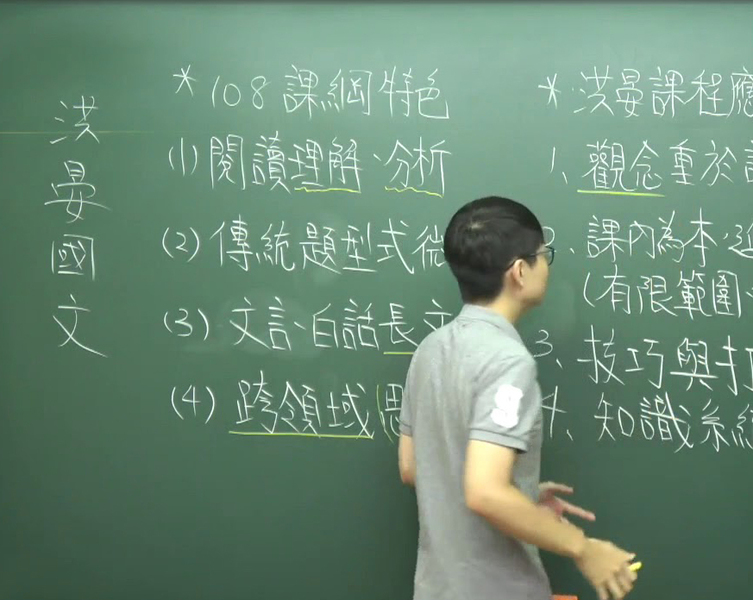 洪晏國文
*108課綱特色
(1)閱讀理解、分析
(2)傳統題型式微
(3)文言、白話長文
(4)跨領域
*洪晏課程應
1、觀念重於
2、課內為本,進
(有限範圍
3、技巧與打
4、知識系統